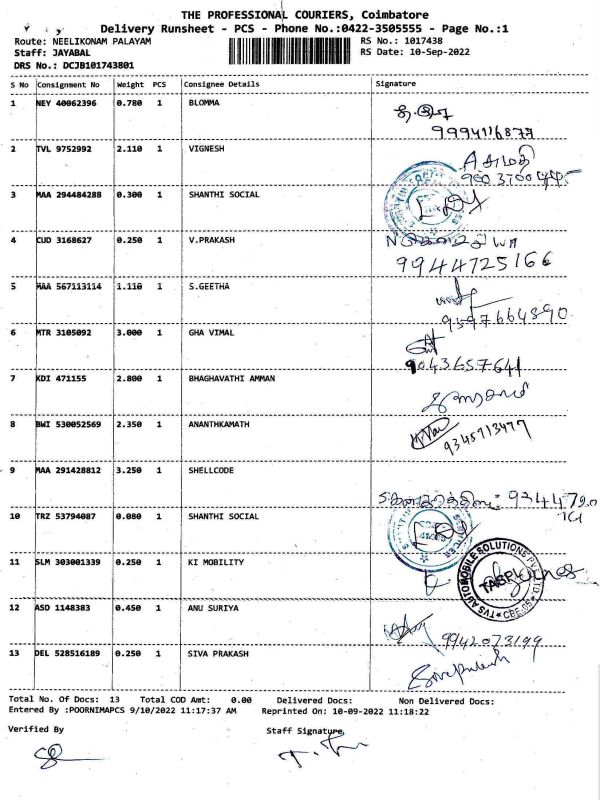 THE PROFESSIONAL COURIERS, Coimbatore
Delivery Runsheet - PCS - Phone No.:0422-3505555 - Page No.:1
Route: NEELIKONAM PALAYAM RS No.: 1017438
Staff: JAYABAL RS Date: 10-Sep-2022
DRS No.: DCJB101743801
S No Consignment No Weight PCS Consignee Details Signature
1 NEY 40062396 0.780 1 BLOMMA
9994116877
2 TVL 9752992 2.110 1 VIGNESH
A சுமதி
3 MAA 294484288 0.300 1 SHANTHI SOCIAL
4 CUD 3168627 0.250 1 V.PRAKASH
9944725166
5 MAA 567113114 1.110 1 S.GEETHA
9597664390
6 MTR 3105092 3.000 1 GHA VIMAL
9043657641
7 KDI 471155 2.800 1 BHAGHAVATHI AMMAN
8 BWI 530052569 2.350 1 ANANTHKAMATH
9345713477
9 MAA 291428812 3.250 1 SHELLCODE
10 TRZ 53794087 0.080 1 SHANTHI SOCIAL
11 SLM 303001339 0.250 1 KI MOBILITY
TVS AUTOMOBILE SOLUTIONS PVT LTD
CBE-05
12 ASD 1148383 0.450 1 ANU SURIYA
9942073199
13 DEL 528516189 0.250 1 SIVA PRAKASH
Sivaprakash
Total No. Of Docs: 13 Total COD Amt: 0.00 Delivered Docs: Non Delivered Docs:
Entered By :POORNIMAPCS 9/10/2022 11:17:37 AM Reprinted On: 10-09-2022 11:18:22
Verified By Staff Signature